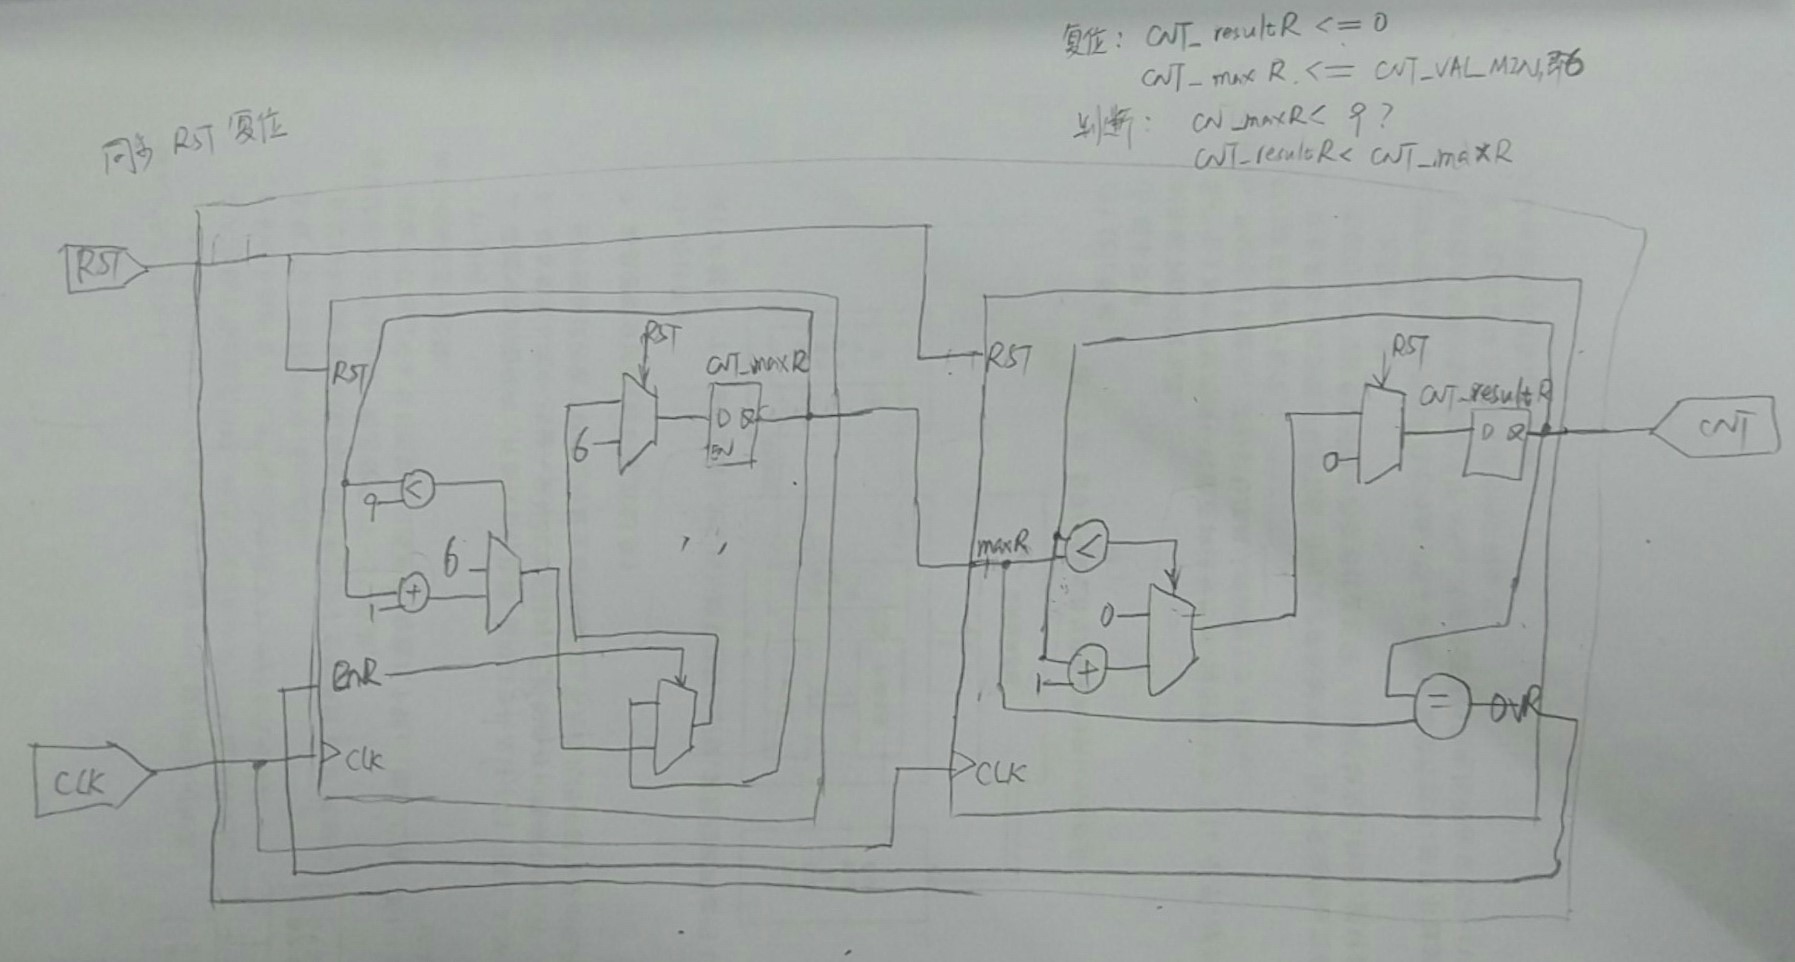 复位: CNT_resultR <= 0
CNT_maxR <= CNT_VAL_MIN,即6
同步 RST 复位
判断: CN_maxR< 9?
CNT_resultR< CNT_maxR
RST
RST
RST
CNT_maxR
D Q
EN
6
9 <
6
1 +
EnR
CLK
CLK
RST
RST
CNT_resultR
D Q
0
CNT
maxR
<
0
1 +
= OVR
CLK